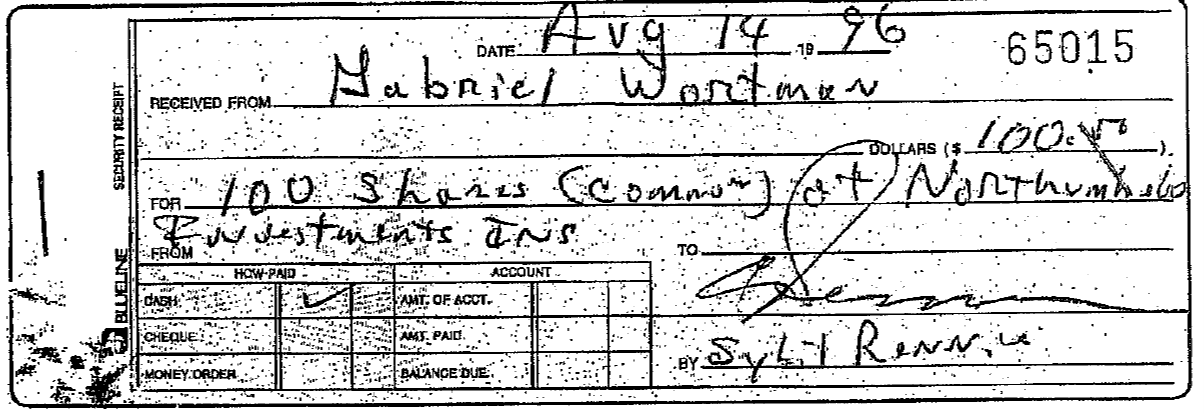 DATE Aug 14 19 96 65015
RECEIVED FROM Gabriel Wortman
DOLLARS ($ 100.00 ).
FOR 100 Shares (Common) of
Investments Ins
FROM TO
HOW PAID ACCOUNT
CASH ✓ AMT. OF ACCT.
CHEQUE AMT. PAID
MONEY ORDER BALANCE DUE
BY
SECURITY RECEIPT
BLUELINE